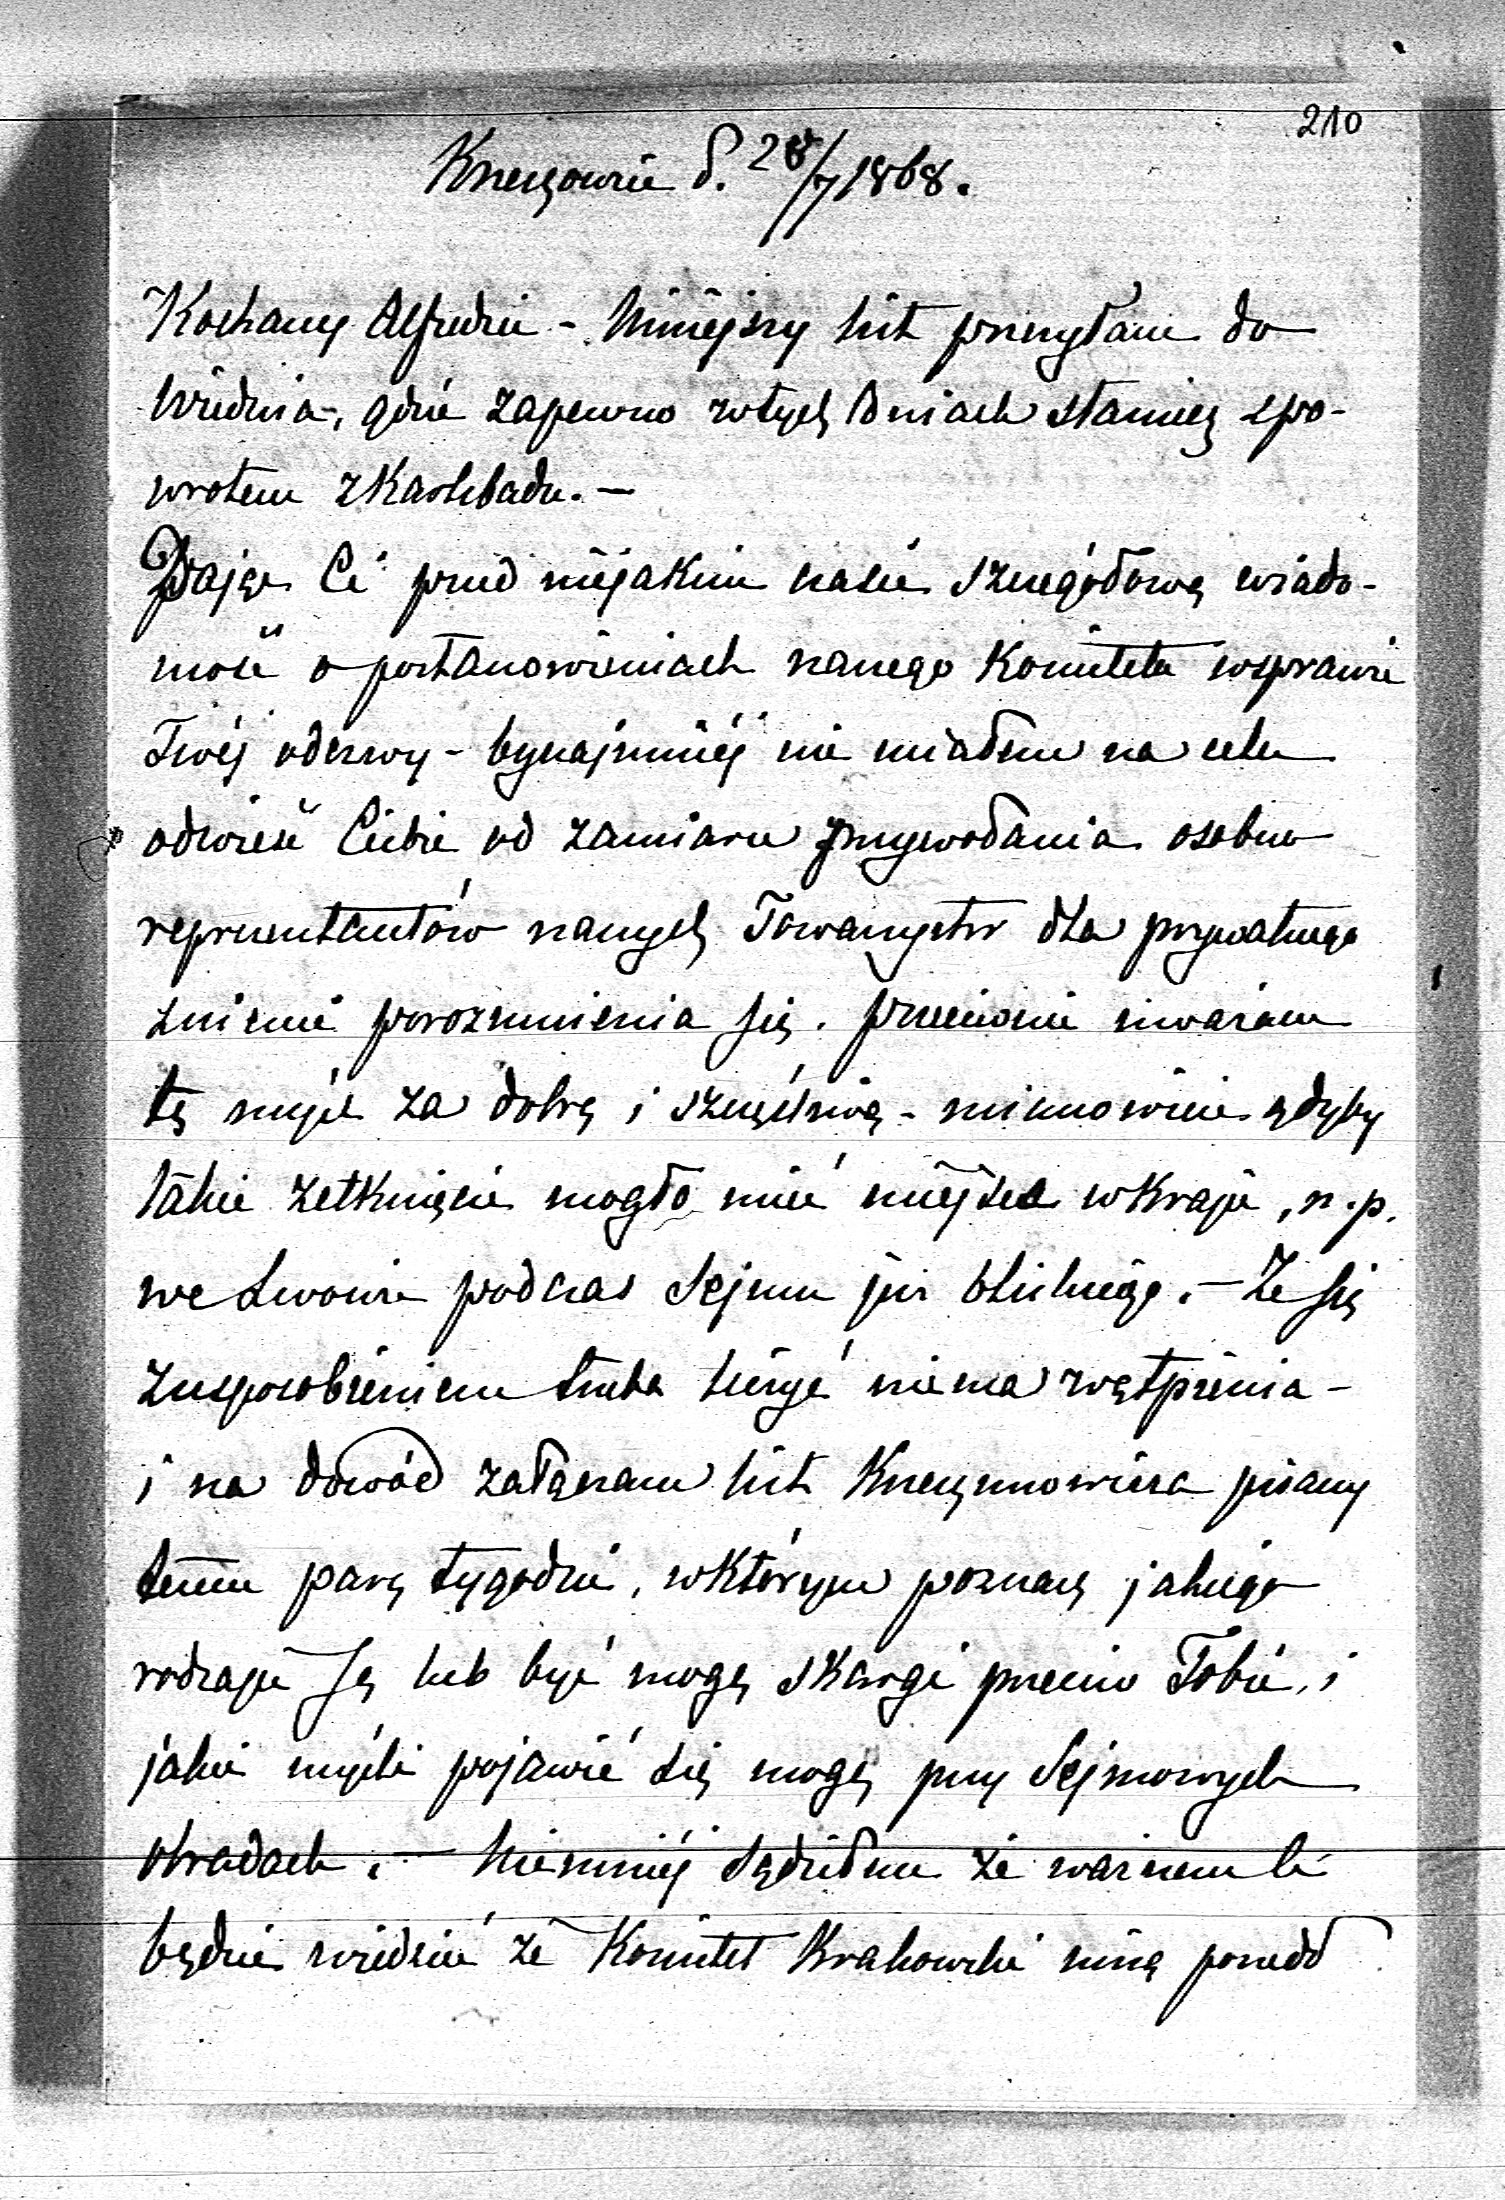 210
Krzeszowice d. 28/7 1868.
Kochany Alfredzie - Niniejszy list przesyłam do
Wiednia, gdzie zapewno wtych Dniach staniesz spo-
wrotem z Karlsbadu. —
Dając Ci przed niejakim czasie szczegółową wiado-
mość o postanowieniach naszego Komitetu wsprawie
Twéj odezwy - bynajmniéj nie miałem na celu
odwieść Ciebie od zamiaru przywołania osobno
reprezentantów naszych Towarzystw dla prywatnego
zniemi porozumienia się. Przeciwnie uważam
tę myśl za dobrą i szczęśliwą - mianowicie gdyby
takie zetknięcie mogło mieć miejsce w Kraju, n.p.
we Lwowie podczas Sejmu już bliskiego. — Że się
zusposobieniem trzeba liczyć niema wątpienia -
i na dowód załączam list pisany
temu parę tygodni, w którym poznasz jakiego
rodzaju są lub być mogą skargi przeciw Tobie, i
jakie myśli pojawić się mogą przy Sejmowych
obradach. — Niemniéj sądziłem że ważnem Ci
będzie wiedzieć że Komitet Krakowski inną poszedł